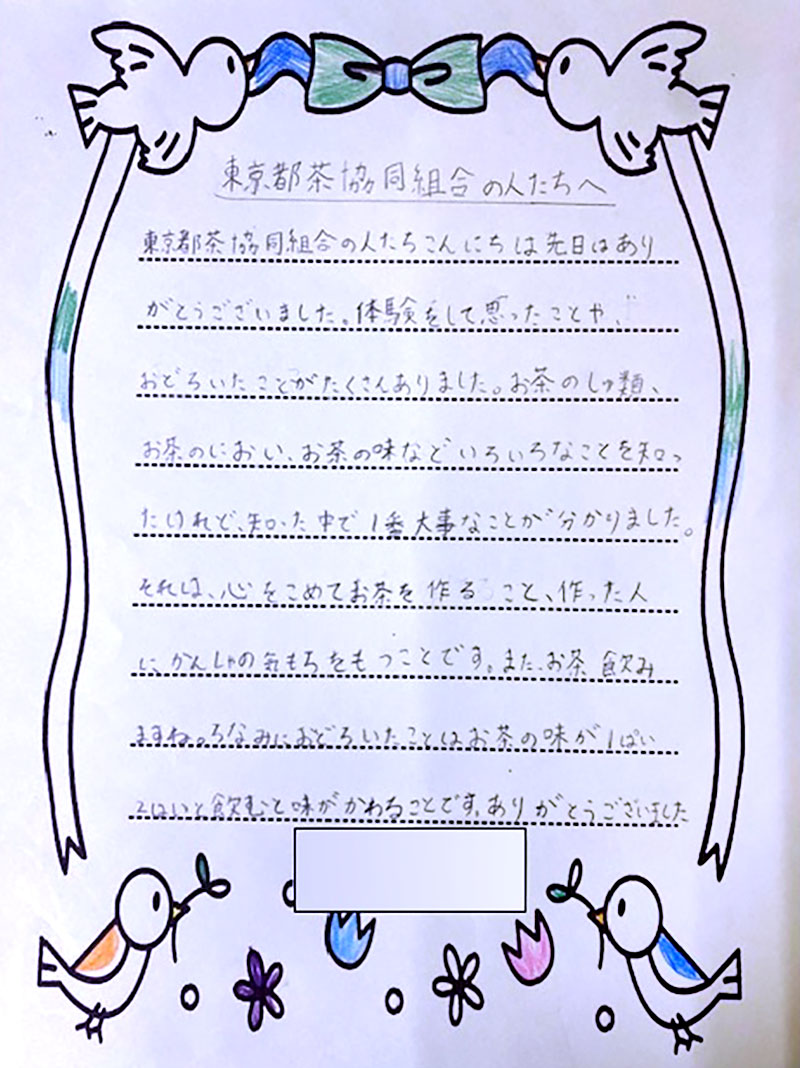 東京都茶協同組合の人たちへ
東京都茶協同組合の人たちこんにちは先日はあり
がとうございました。体験をして思ったことや、
おどろいたことがたくさんありました。お茶のしゅ類、
お茶のにおい、お茶の味などいろいろなことを知っ
たけれど、知った中で1番大事なことが分かりました。
それは、心をこめてお茶を作ること、作った人
に、かんしゃの気もちをもつことです。また、お茶飲み
ますね。ちなみにおどろいたことはお茶の味が1ぱい
2はいと飲むと味がかわることです。ありがとうございました